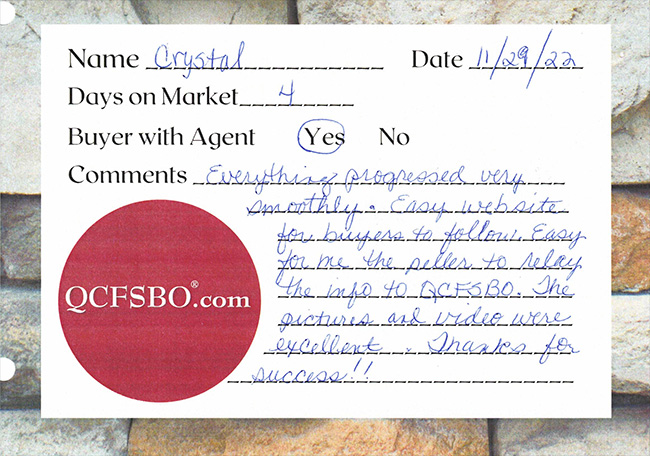 Name Crystal Date 11/29/22
Days on Market 4
Buyer with Agent Yes No
Comments Everything progressed very
smoothly. Easy website
for buyers to follow. Easy
for me the seller to relay
the info to QCFSBO. The
pictures and video were
excellent. Thanks for
success!!
QCFSBO®.com